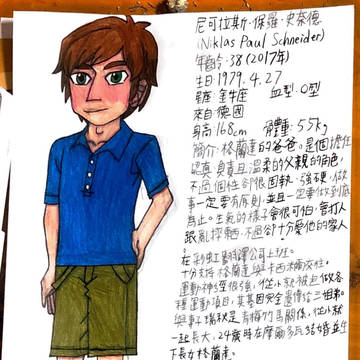 尼可拉斯·保羅·史奈德
(Niklas Paul Schneider)
年齡:38(2017年)
生日:1979.4.27
星座:金牛座 血型:O型
來自:德國
身高:168cm 體重:55kg
簡介:格蘭達的爸爸。是個擔任
認真、負責且溫柔的父親的角色,
不過個性卻很固執、強硬,做
事一定要有原則,並且一定要做到底
為止。生氣的樣子會很可怕,會打人
跟亂摔東西,不過卻十分愛他的家人
在彩虹 公司上班。
十分支持格蘭達與卡西 交往。
運動神經很強,從小就被迫做各
種運動項目,其基因完全遺傳給三姐弟。
與妻子瑞秋是青梅竹馬關係,從小就
一起長大,24歲時在摩爾多瓦結婚並生
下長女格蘭達。